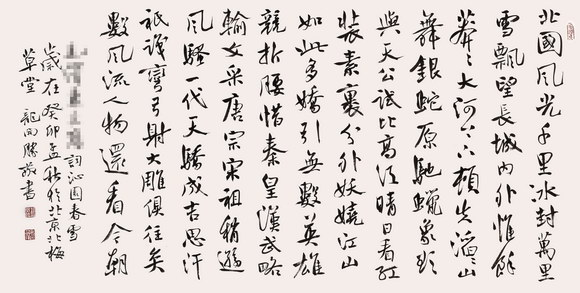 北國風光千里冰封萬里
雪飄望長城內外惟餘
莽々大河上下頓失滔々山
舞銀蛇原馳蠟象欲
與天公試比高須晴日看紅
裝素裹分外妖嬈江山
如此多嬌引無數英雄
競折腰惜秦皇漢武略
輸文采唐宗宋祖稍遜
風騷一代天驕成吉思汗
祇識彎弓射大雕俱往矣
數風流人物還看今朝
詞沁園春雪
歲在癸卯孟秋於北京北梅
草堂 書